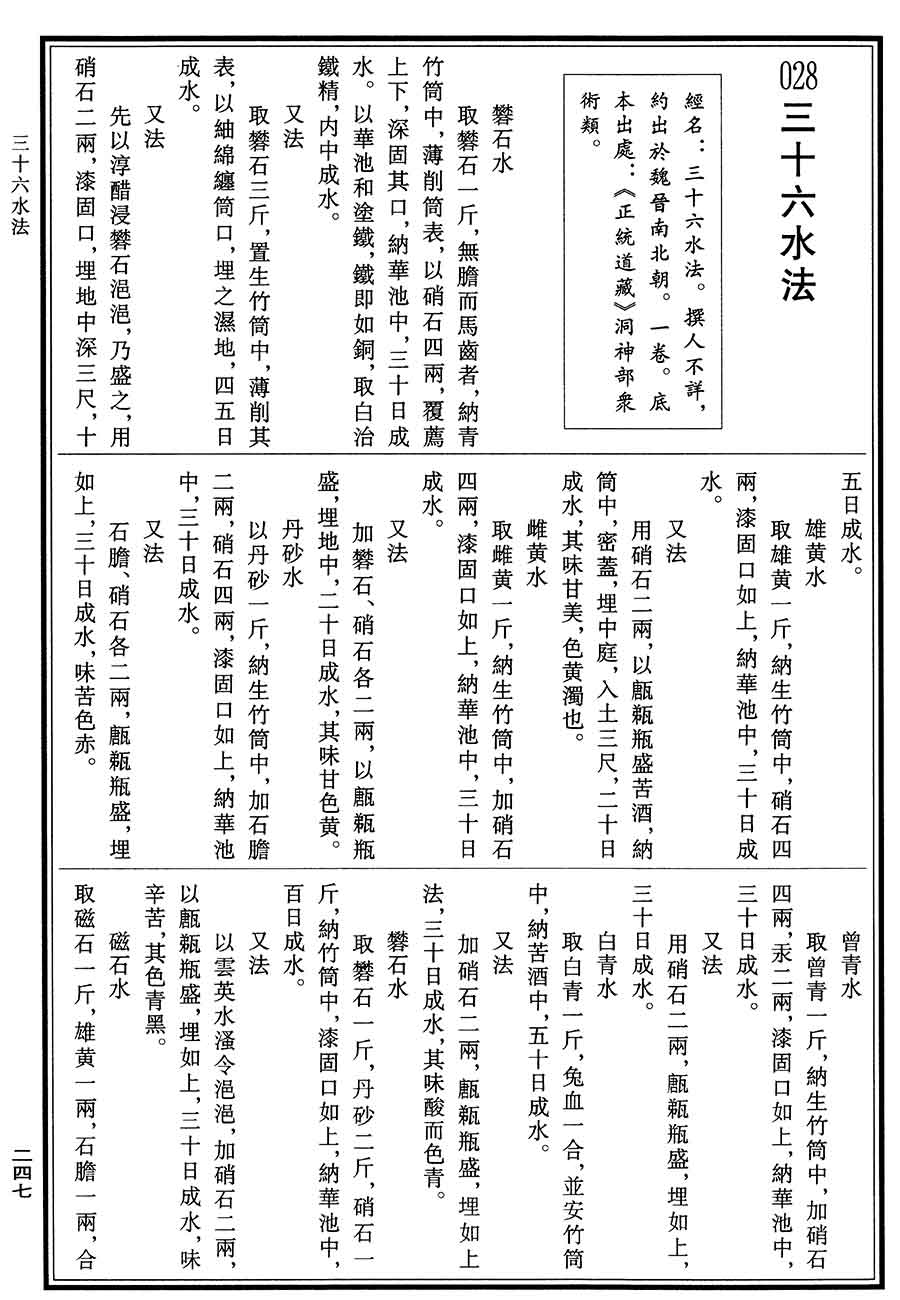 028三十六水法
經名：三十六水法。撰人不詳，
約出於魏晉南北朝。一卷。底
本出處：《正統道藏》洞神部衆
術類。
礬石水
取礬石一斤，無膽而馬齒者，納青
竹筒中，薄削筒表，以硝石四兩，覆薦
上下，深固其口，納華池中，三十日成
水。以華池和塗鐵，鐵即如銅，取白治
鐵精，内中成水。
又法
取礬石三斤，置生竹筒中，薄削其
表，以紬綿纏筒口，埋之濕地，四五日
成水。
又法
先以淳醋浸礬石浥浥，乃盛之，用
硝石二兩，漆固口，埋地中深三尺，十
五日成水。
雄黄水
取雄黄一斤，納生竹筒中，硝石四
兩，漆固口如上，納華池中，三十日成
水。
又法
用硝石二兩，以甋㼾瓶盛苦酒，納
筒中，密蓋，埋中庭，入土三尺，二十日
成水，其味甘美，色黄濁也。
雌黄水
取雌黄一斤，納生竹筒中，加硝石
四兩，漆固口如上，納華池中，三十日
成水。
又法
加礬石、硝石各二兩，以甋㼾瓶
盛，埋地中，二十日成水，其味甘色黄。
丹砂水
以丹砂一斤，納生竹筒中，加石膽
二兩，硝石四兩，漆固口如上，納華池
中，三十日成水。
又法
石膽、硝石各二兩，甋㼾瓶盛，埋
如上，三十日成水，味苦色赤。
曾青水
取曾青一斤，納生竹筒中，加硝石
四兩，汞二兩，漆固口如上，納華池中，
三十日成水。
又法
用硝石二兩，甋㼾瓶盛，埋如上，
三十日成水。
白青水
取白青一斤，兔血一合，並安竹筒
中，納苦酒中，五十日成水。
又法
加硝石二兩，甋㼾瓶盛，埋如上
法，三十日成水，其味酸而色青。
礬石水
取礬石一斤，丹砂二斤，硝石一
斤，納竹筒中，漆固口如上，納華池中，
百日成水。
又法
以雲英水溲令浥浥，加硝石二兩，
以甋㼾瓶盛，埋如上，三十日成水，味
辛苦，其色青黑。
磁石水
取磁石一斤，雄黄一兩，石膽一兩，合
三十六水法
二四七